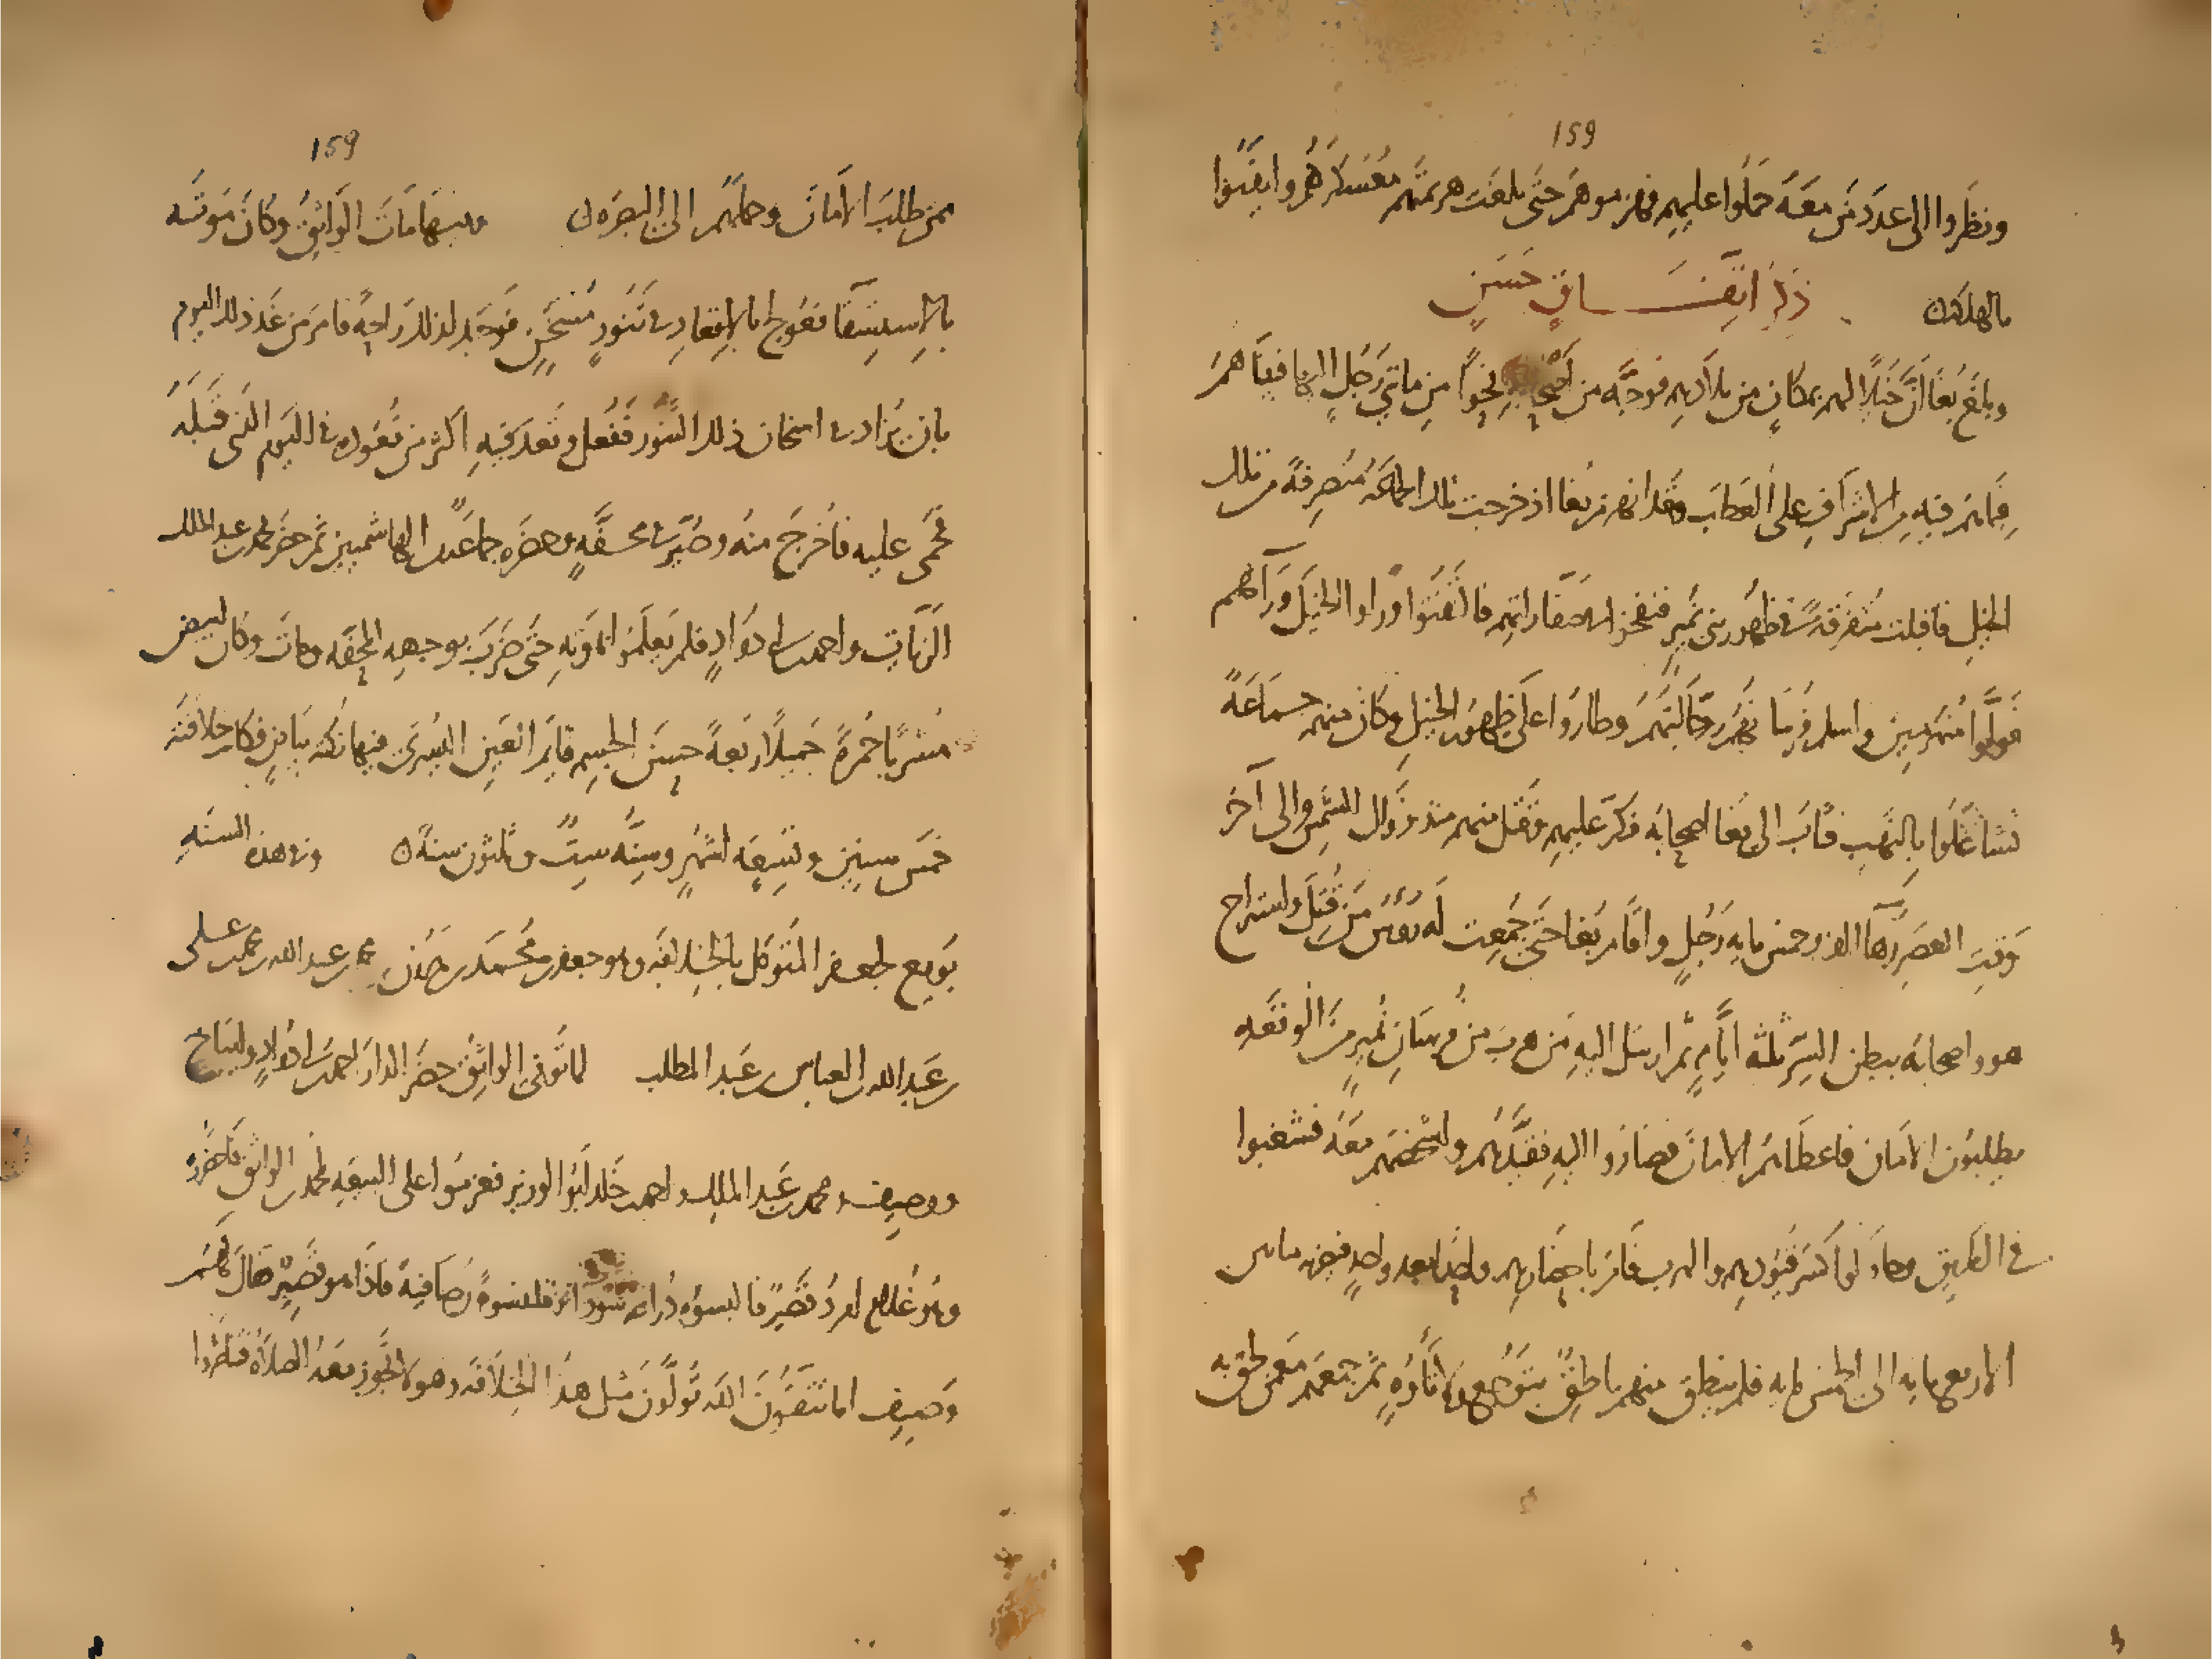 159
ونظروا الى عدد من معه حملوا عليهم فهزموهم حتى بلغت هزيمتهم معسكرهم وايقنوا
بالهلكة
ذكر اتفاق حسن
وبلغ بغا ان خيلا لهم بمكان من بلادهم فوجه من اصحابه نحوا من مائتي رجل اليها فبينا هم
فيما هم فيه من الاشراف على العطب وقد انهزم بغا اذ خرجت تلك الجماعة منصرفة من تلك
الخيل فاقبلت متفرقة في ظهور بني نمير فنفخوا صفاراتهم فالتفتوا وراوا الخيل وراهم
فولوا منهزمين واسلم فرسانهم رجالتهم وطاروا على ظهور الخيل وكان منهم جماعة
تشاغلوا بالنهب فثاب الى بغا اصحابه فكر عليهم فقتل منهم منذ زوال الشمس والى آخر
وقت العصر زها الف وخمس مايه رجل واقام بغا حتى جمعت له رؤس من قتل واستراح
هو واصحابه ببطن السر ثلثه ايام ثم ارسل اليه من هرب من فرسان نمير من الوقعه
يطلبون الامان فاعطاهم الامان فصاروا اليه فقيدهم واشخصهم معه فشغبوا
في الطريق وحاولوا كسر قيودهم والهرب فامر باحضارهم واحدا بعد واحد فضربه ما بين
الاربع مايه الى الخمس مايه فلم ينطق منهم ناطق بتوجع ولا تأوه ثم جمعهم مع من لحق به
159
ممن طلب الامان وحملهم الى البصره وفيها مات الواثق وكان موته
بالاستسقا فعولج بالاقعاد في تنور مسخن فوجد لذلك راحة فامر من غد ذلك اليوم
بان يزاد في اسخان ذلك التنور ففعل وقعد فيه اكثر من قعوده في اليوم الذي قبله
فحمي عليه فاخرج منه وصير في محفة وحضره جماعة الهاشميين ثم حضر محمد بن عبد الملك
الزيات واحمد بن ابي دواد فلم يعلموا بموته حتى ضرب بوجهه المحفه ومات وكان ابيض
مشربا حمرة جميلا ربعة حسن الجسم قايم العين اليسرى فيها نكته بياض فكانت خلافته
خمس سنين وتسعه اشهر وسنه ست وثلثون سنة وفي هذه السنه
بويع لجعفر المتوكل بالخلافه وهو جعفر بن محمد بن هرون بن محمد بن عبد الله بن محمد بن علي
بن عبد الله بن العباس بن عبد المطلب لما توفى الواثق حضر الدار احمد بن ابي دواد وايتاخ
ووصيف ومحمد بن عبد الملك واحمد بن خلد ابو الوزير فعزموا على البيعه لمحمد بن الواثق فاحضر
وهو غلام امرد قصير فالبسوه دراعه سودا وقلنسوة رصافية فاذا هو قصير فقال لهم
وصيف اما تتقون الله تولون مثل هذا الخلافه وهو لا تجوز معه الصلاة فتناظروا